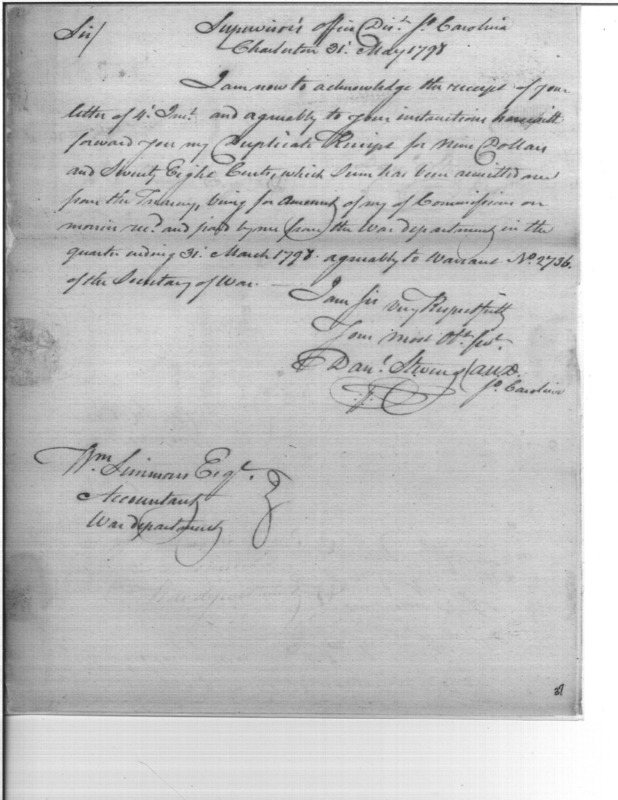 Sir/ Supervisor's office Dist. So. Carolina
Charleston 31st May 1798
I am now to acknowledge the receipt of your
letter of 4th Inst. and agreeably to your instructions herewith
forward you my Duplicate Receipt for Nine Dollars
and Seventy Eight Cents, which Sum has been remitted me
from the Treasury, being for amount of my Commissions on
monies recd. and paid by me from the War department in the
quarter ending 31st March 1798. agreeably to Warrant No. 2736.
of the Secretary of War.
I am Sir very Respectfully
Your most Obt. Servt.
Danl. Stevens
So. Carolina
Wm. Simmons Esqr.
Accountant
War department